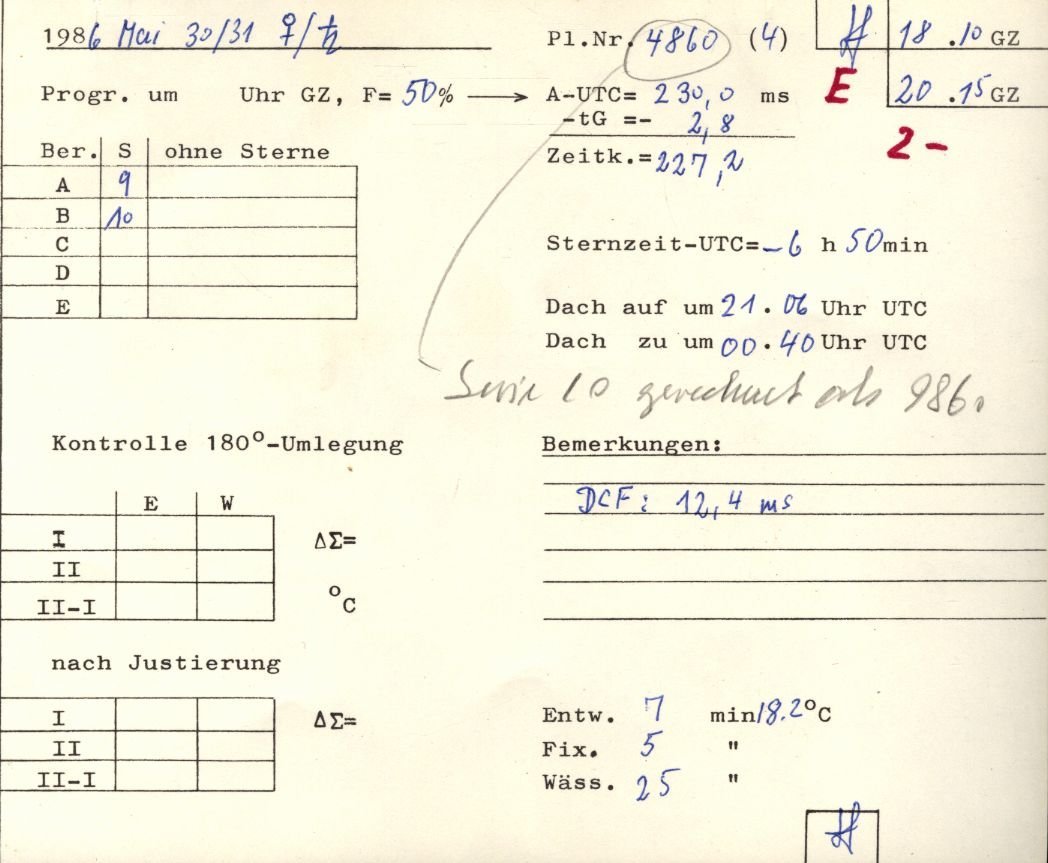 1986 Mai 30/31 ♀/♄ Pl.Nr. 4860 (4) 18.10 GZ
Progr. um Uhr GZ, F= 50% → A-UTC= 230,0 ms E 20.15 GZ
-tG =- 2,8 2-
Ber. S ohne Sterne Zeitk.= 227,2
A 9
B 10
C
D
E
Sternzeit-UTC= -6 h 50 min
Dach auf um 21.06 Uhr UTC
Dach zu um 00.40 Uhr UTC
Serie 10 gerechnet als 986
Kontrolle 180°-Umlegung
E W
I ΔΣ=
II
II-I °C
Bemerkungen:
DCF: 12,4 ms
nach Justierung
I ΔΣ=
II
II-I
Entw. 7 min 18.2°C
Fix. 5 "
Wäss. 25 "